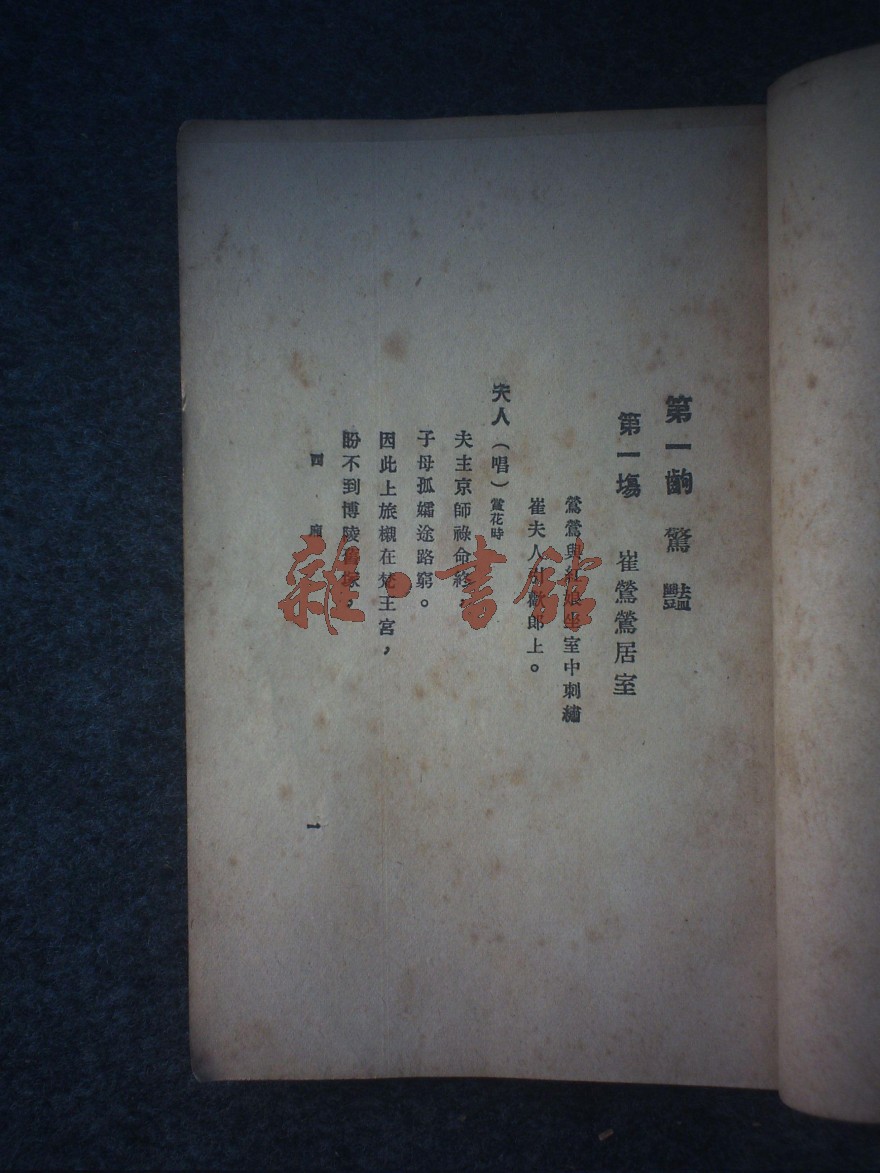 第一齣 驚艷
第一場 崔鶯鶯居室
鶯鶯與紅娘坐室中刺繡
崔夫人引歡郎上。
夫人（唱）賞花時
夫主京師祿命終，
子母孤孀途路窮。
因此上旅櫬在梵王宮，
盼不到博陵舊冢，
西 廂
1
雜·書館